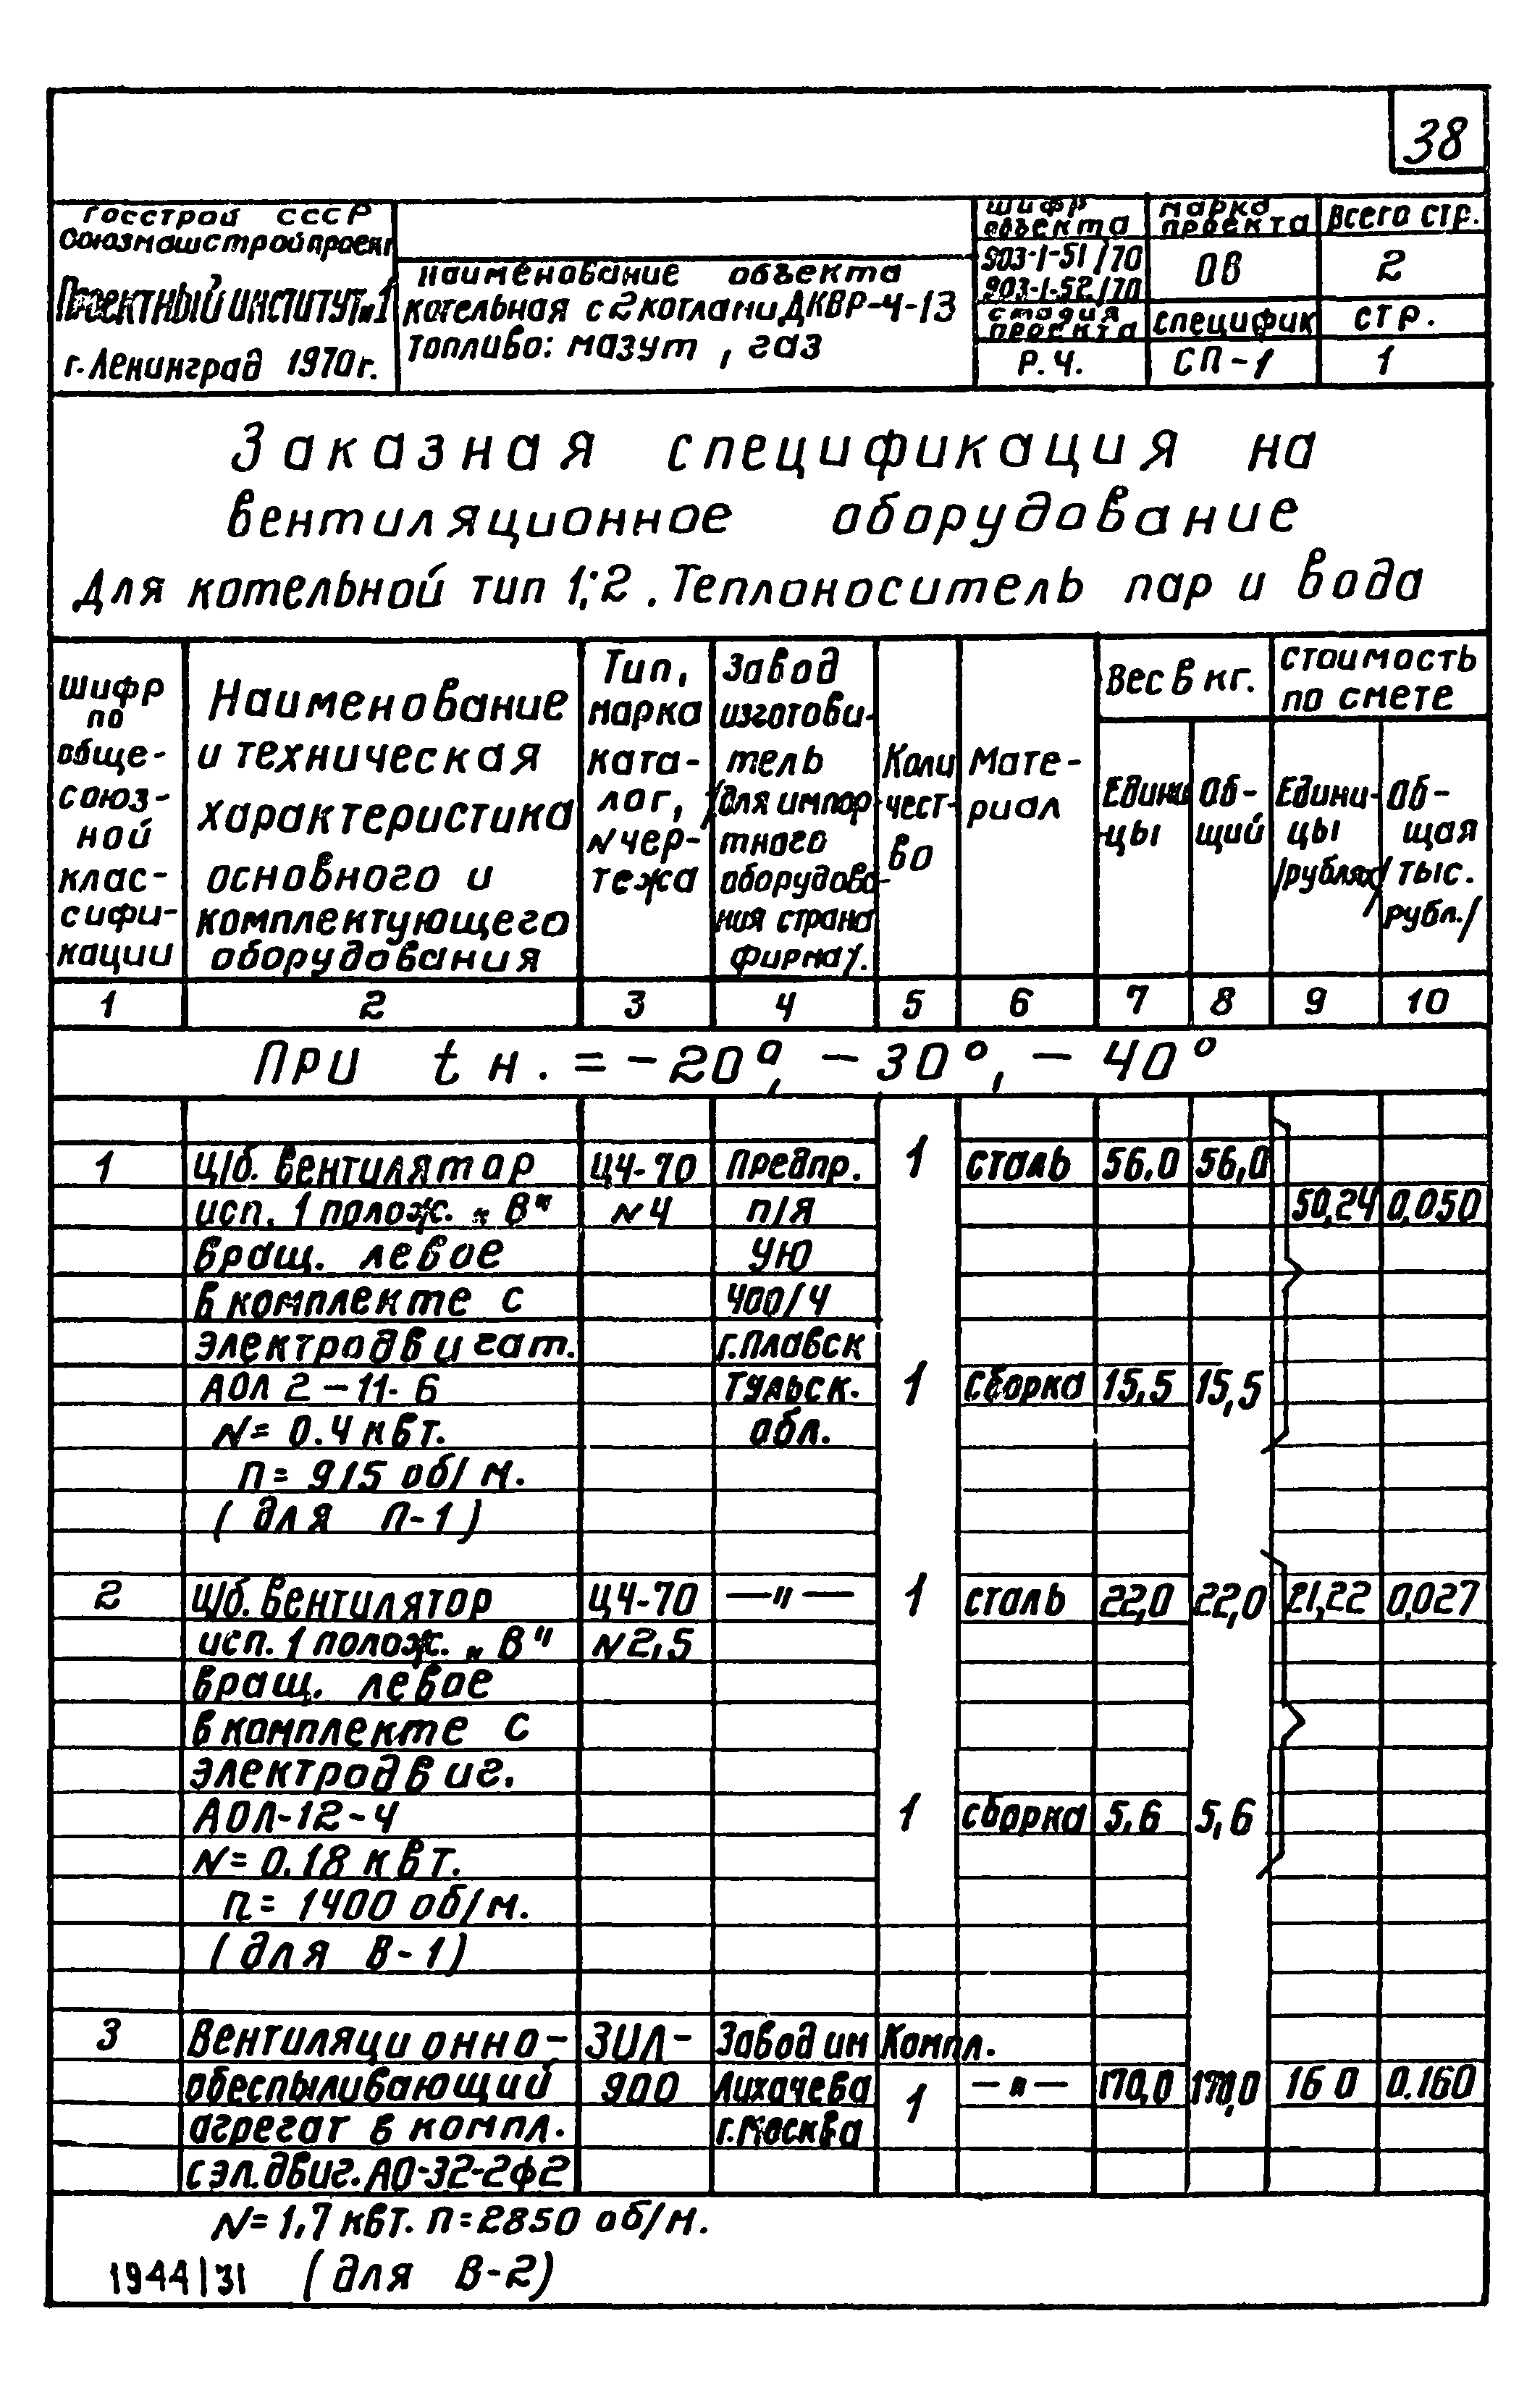 38
Госстрой СССР
Союзмашстройпроект
Проектный институт №1
г. Ленинград 1970 г.
наименование объекта
котельная с 2 котлами ДКВР-4-13
топливо: мазут, газ
шифр объекта
903-1-51/70
903-1-52/70
стадия проекта
Р.Ч.
марка проекта
ОВ
специфик
СП-1
всего стр.
2
стр.
1
Заказная спецификация на
вентиляционное оборудование
Для котельной тип 1;2. Теплоноситель пар и вода
Шифр
по
обще-
союз-
ной
клас-
сифи-
кации
Наименование
и техническая
характеристика
основного и
комплектующего
оборудования
Тип,
марка
ката-
лог,
№ чер-
тежа
Завод
изготови-
тель
/для импор
тного
оборудова-
ния страна
фирма/.
Коли
чест-
во
Мате-
риал
Вес в кг.
Едини
цы
Об-
щий
Стоимость
по смете
Едини-
цы
/рублях/
Об-
щая
/тыс.
рубл./
1 2 3 4 5 6 7 8 9 10
При tн. = -20°, -30°, -40°
1 Ц/б. вентилятор Ц4-70 Предпр. 1 сталь 56.0 56,0
исп. 1 полож. „В" №4 п/я 50,24 0,050
вращ. левое УЮ
в комплекте с 400/4
электродвигат. г. Плавск
АОЛ 2-11-6 Тульск. 1 сборка 15,5 15,5
N= 0.4 квт. обл.
n= 915 об/м.
(для П-1)
2 Ц/б. вентилятор Ц4-70 —"— 1 сталь 22,0 22,0 21,22 0,027
исп. 1 полож. „В" №2,5
вращ. левое
в комплекте с
электродвиг.
АОЛ-12-4 1 сборка 5,6 5,6
N= 0.18 квт.
n= 1400 об/м.
(для В-1)
3 Вентиляционно- ЗИЛ- Завод им Компл.
обеспыливающий 900 Лихачева 1 —"— 170,0 170,0 160 0.160
агрегат в компл. г. Москва
с эл. двиг. АО-32-2ф2
N= 1,7 квт. n=2850 об/м.
(для В-2)
1944|31